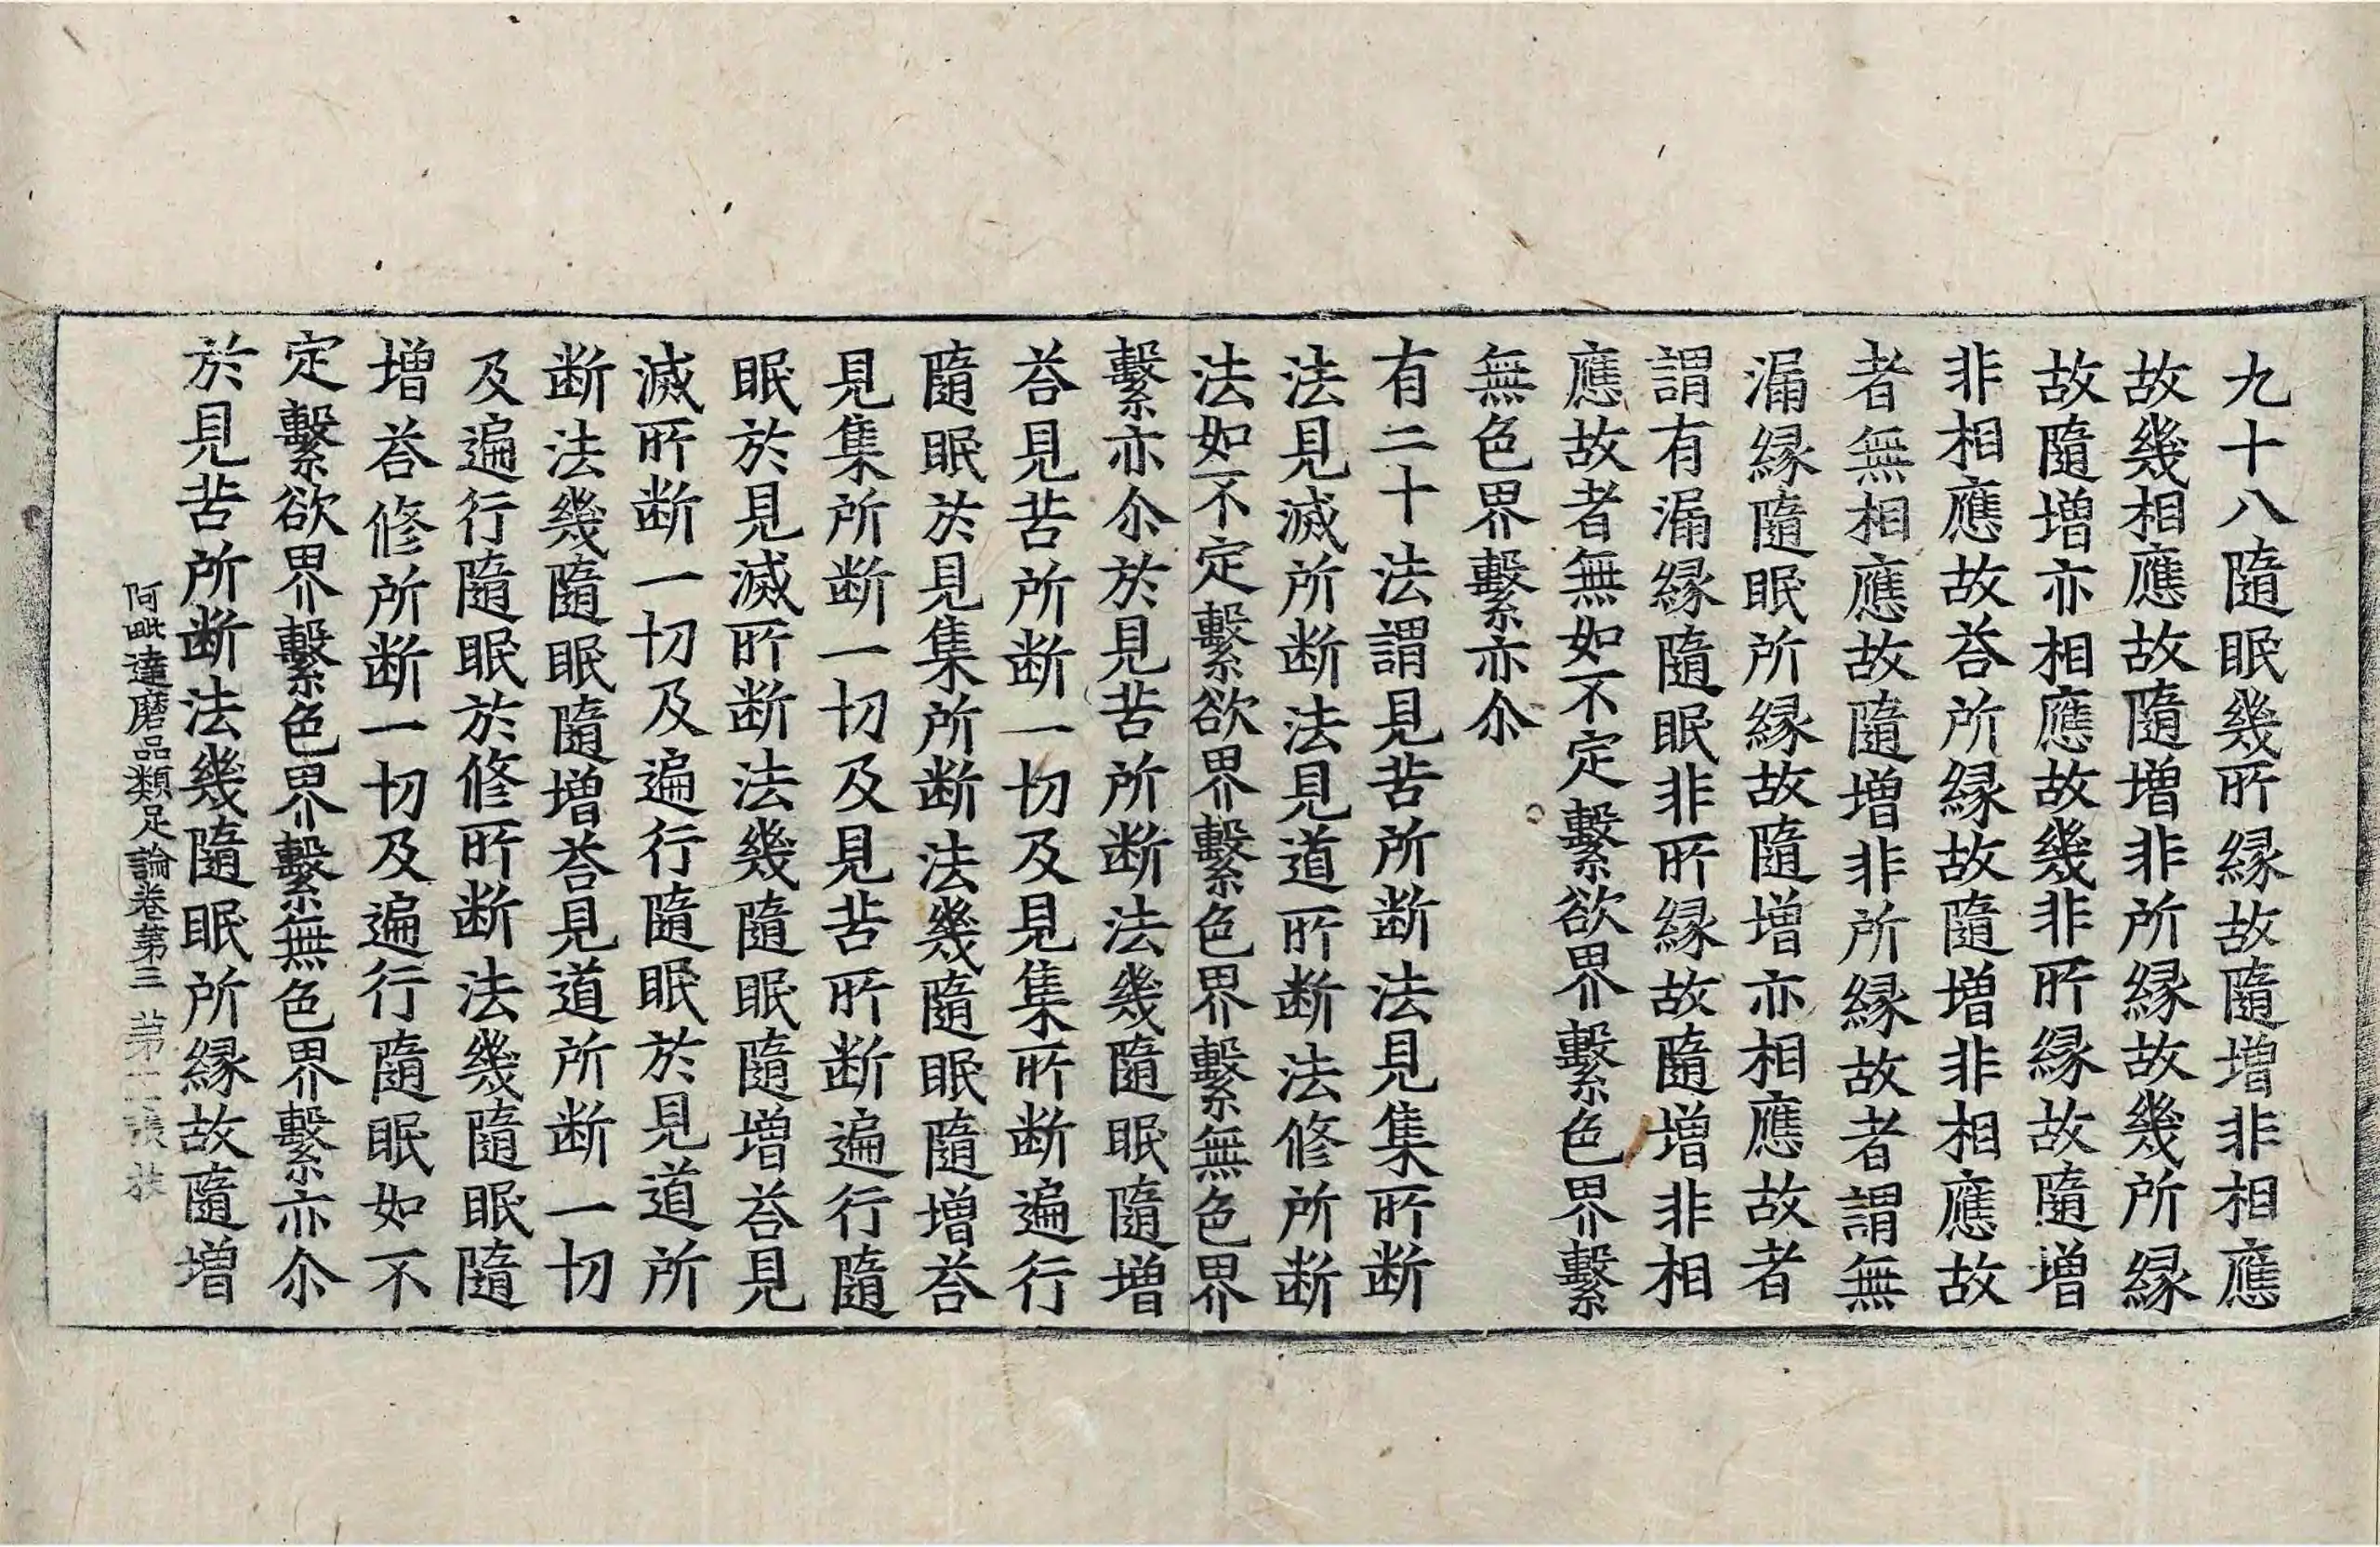 九十八隨眠幾所縁故隨増非相應
故幾相應故隨増非所縁故幾所縁
故隨増亦相應故幾非所縁故隨増
非相應故荅所縁故隨増非相應故
者無相應故隨増非所縁故者謂無
漏縁隨眠所縁故隨増亦相應故者
謂有漏縁隨眠非所縁故隨増非相
應故者無如不定繫欲界繫色界繫
無色界繫亦尒
有二十法謂見苦所断法見集所断
法見滅所断法見道所断法修所断
法如不定繫欲界繫色界繫無色界
繫亦尒於見苦所断法幾隨眠隨増
荅見苦所断一切及見集所断遍行
隨眠於見集所断法幾隨眠隨増荅
見集所断一切及見苦所断遍行隨
眠於見滅所断法幾隨眠隨増荅見
滅所断一切及遍行隨眠於見道所
断法幾隨眠隨増荅見道所断一切
及遍行隨眠於修所断法幾隨眠隨
増荅修所断一切及遍行隨眠如不
定繫欲界繫色界繫無色界繫亦尒
於見苦所断法幾隨眠所縁故隨増
阿毗達磨品類足論卷第三 第 張